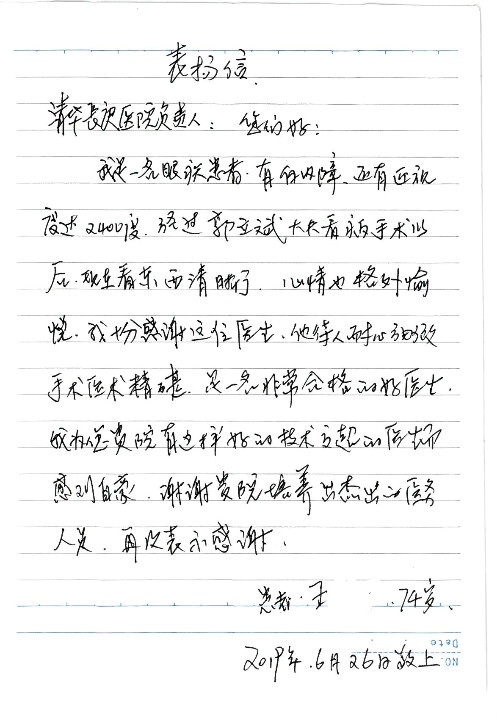 表扬信.
清华长庚医院负责人： 您们好：
我是一名眼疾患者.有白内障、还有近视
度达2400度.经过郭立斌大夫看病手术以
后.现在看东西清晰了.心情也格外愉
悦.我十分感谢这位医生、他待人耐心细致
手术医术精湛.是一名非常合格的好医生.
我为您贵院有这样好的技术立起的医生而
感到自豪.谢谢贵院培养出杰出的医务
人员.再次表示感谢.
患者.王 .74岁、
2019年.6月26日敬上
NO.
Date